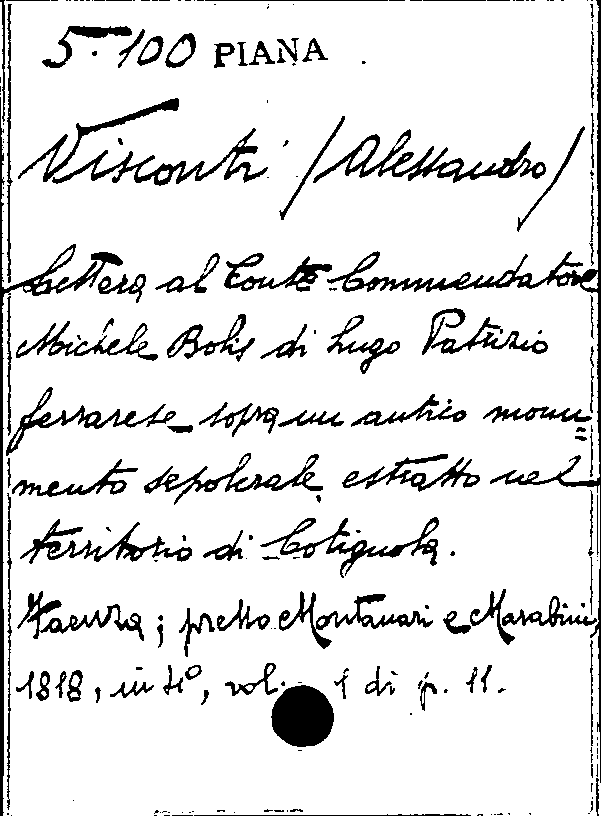 5.-100 PIANA
Visconti /Alessandro/
Lettera al Conte Commendatore
Michele Bolis di Lugo Patrizio
ferrarese sopra un antico monu=
mento sepolcrale estratto nel
territorio di Cotignola.
Faenza; presso Montanari e Marabini,
1818, in 4º, vol. 1 di p. 11.